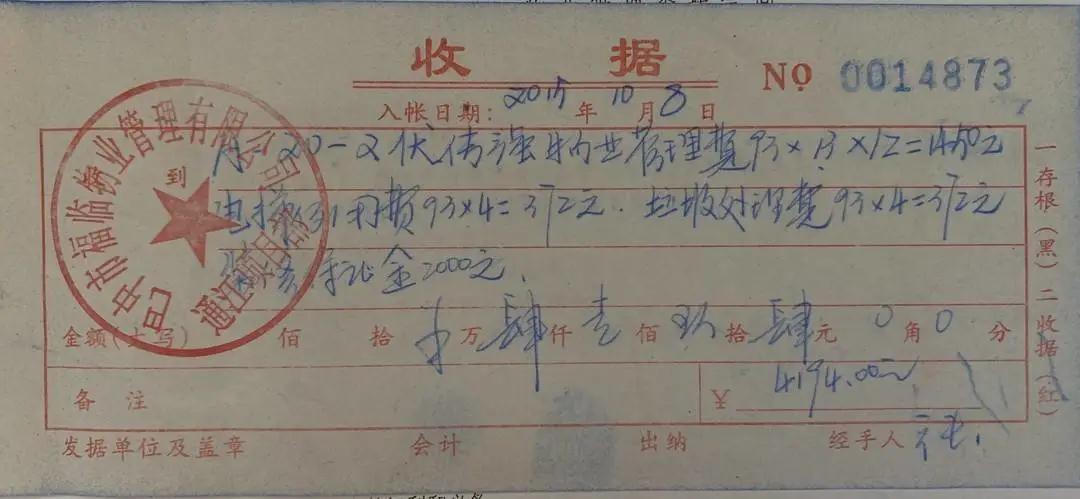 收 据
NO 0014873
入帐日期: 2015 年 10 月 8 日
收 到 20-2伏伟强物业管理费93×1.3×12=1450元
电梯引用费93×4=372元. 垃圾处理费93×4=372元
保证金2000元.
金额(大写) 佰 拾 万 肆 仟 壹 佰 玖 拾 肆 元 0 角 0 分
备 注 ¥ 4194.00元
发据单位及盖章 会计 出纳 经手人
一存根(黑) 二收据(红)
巴中市福临物业管理有限公司
通江项目部